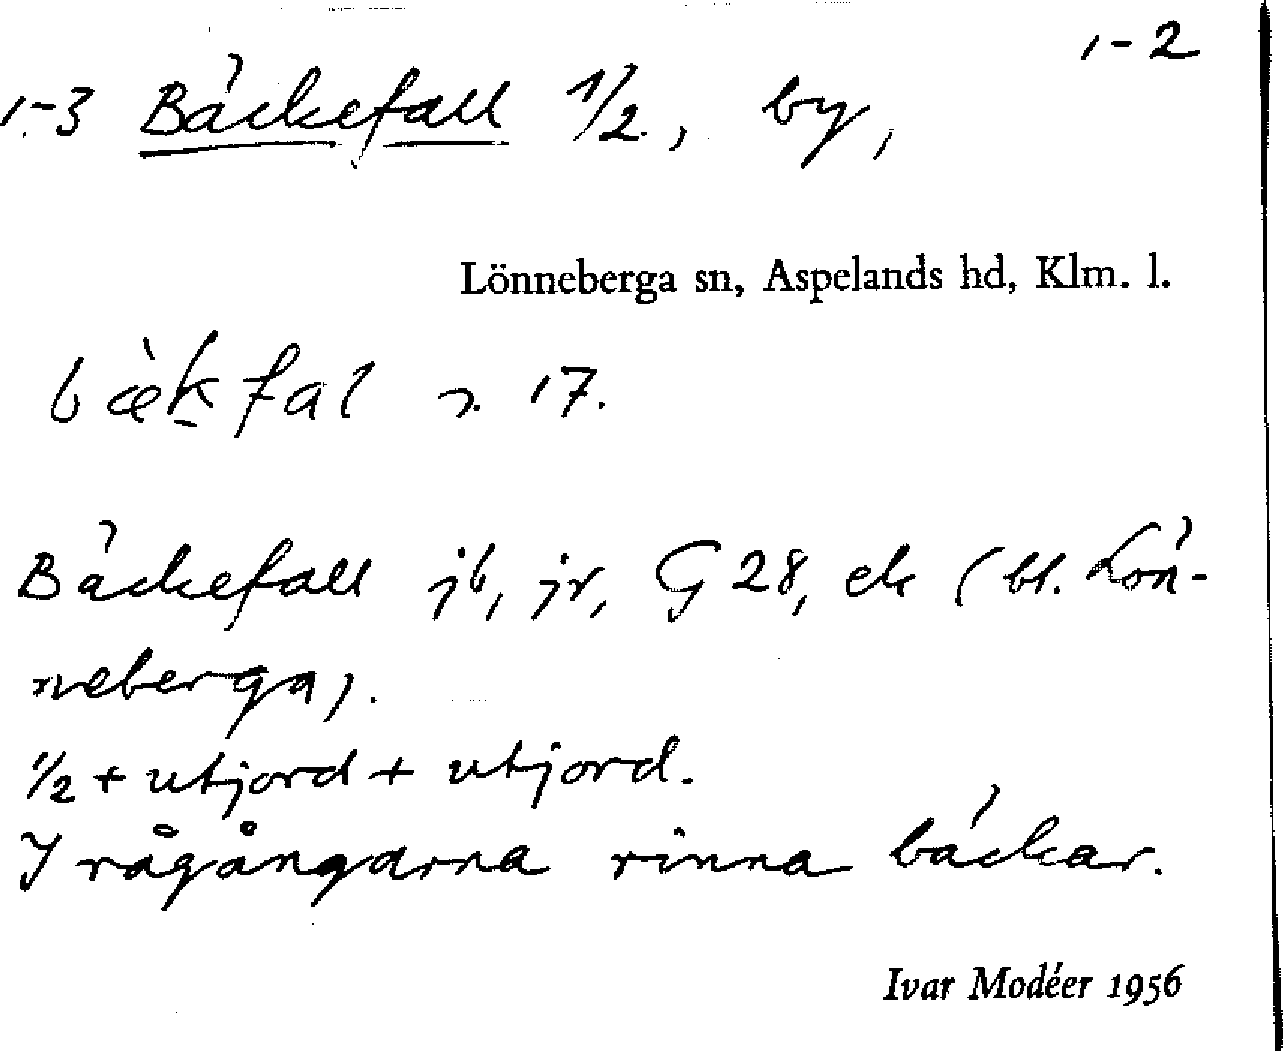 1-2
1-3 Bäckefall 1/2, by,
Lönneberga sn, Aspelands hd, Klm. l.
bæ̀kfal 17.
Bäckefall jb, jr, G 28, ek (bl. Lön-
neberga).
1/2 + utjord + utjord.
I rågångarna rinna bäckar.
Ivar Modéer 1956